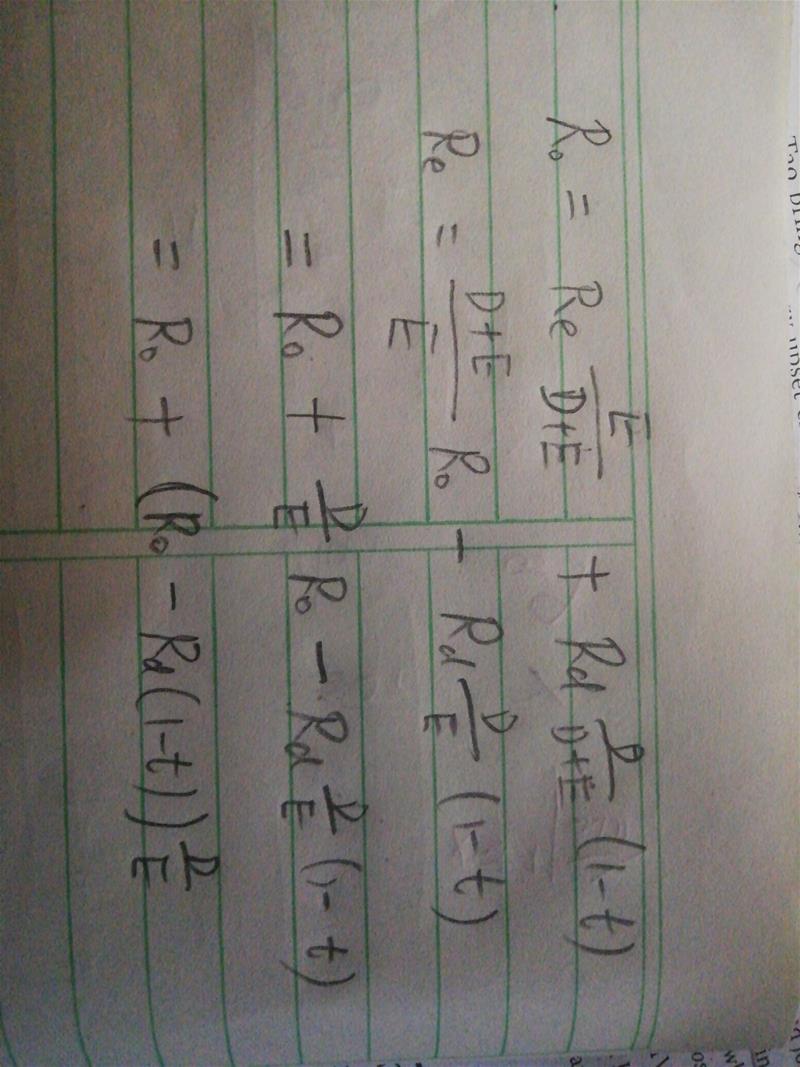 R₀ = Re E/(D+E) + Rd D/(D+E) (1-t)
Re = (D+E)/E R₀ - Rd D/E (1-t)
= R₀ + D/E R₀ - Rd D/E (1-t)
= R₀ + (R₀ - Rd(1-t)) D/E